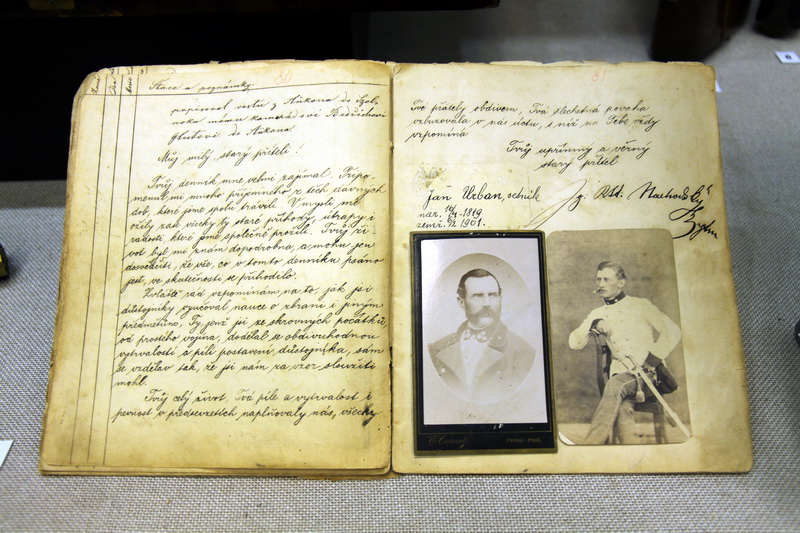 Stáce a poznámky.
popisoval cestu z Aukona do Szol-
noka mému kamarádovi Bedřichovi
do Aukona
Můj milý starý příteli!
Tvůj denník mne velmi zajímal. Připo-
menul mi mnoho příjemného z těch dávných
dob, které jsme spolu trávili. V mysli mé
ožily zase všecky ty staré příhody, útrapy i
radosti, které jsme společně prožili. Tvůj ži-
vot byl mě znám dopodrobna, a mohu jen
dosvědčiti, že vše, co v tomto denníku psáno
jest, ve skutečnosti se přihodilo.
Zvláště rád vzpomínám na to, jak jsi
důstojníky vyučoval nauce o zbrani i jiným
předmětům. Ty, jenž jsi ze skrovných počátků,
od prostého vojína, dodělal se obdivuhodnou
vytrvalostí a pílí postavení důstojníka, sám
se vzdělav tak, že jsi nám za vzor sloužiti
mohl.
Tvůj celý život, Tvá píle a vytrvalost i
pevnost v předsevzetích naplňovaly nás, všecky
31
Tvé přátely obdivem, Tvá šlechetná povaha
vzbuzovala v nás úctu, s níž na Tebe vždy
vzpomíná
Tvůj upřímný a věrný
starý přítel
Jan Urban, setník
nar. 1819
zemř. 1901.